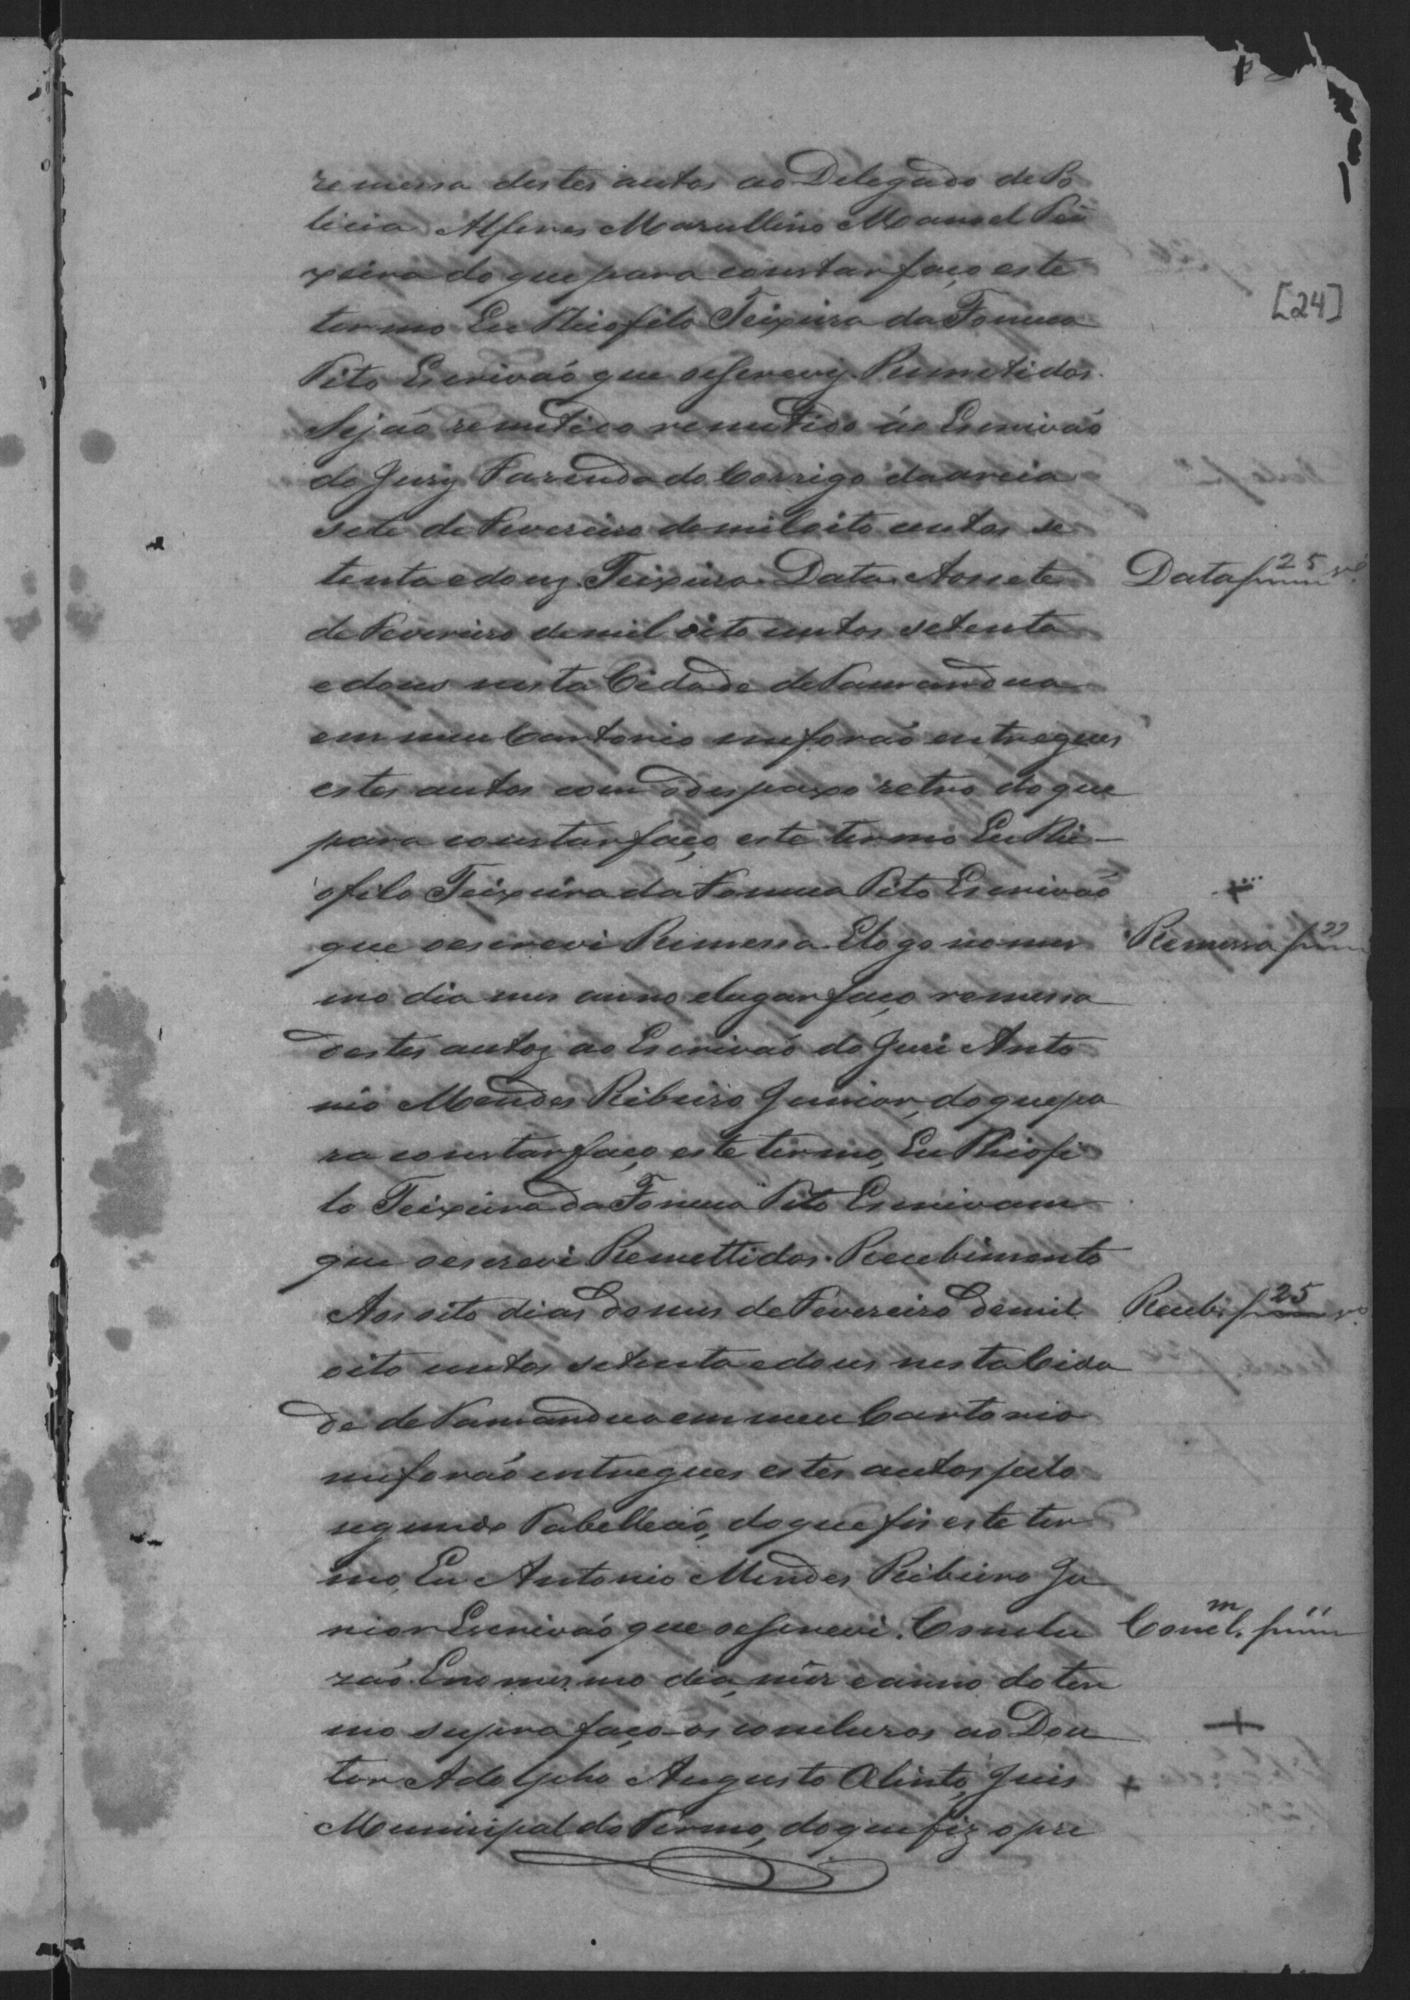 remessa destes autos ao Delegado de Po
licia Alferes Marcellino Manoel Tei
xeira do que para constar faço este
termo Eu Theofilo Teixeira da Fonseca
Pito Escrivaõ que osscrevy Remetidos.
Sejaõ remetidos ao Escrivaõ
do Jury Fazenda do Corrigo da areia
sete de Fevereiro de mil oito centos se
tenta e douz Teixeira Data Aos sete
de Fevereiro de mil oito centos setenta
e dous nesta Cidade de Tamandua
em meu Cartorio me foraõ entregues
estes autos com o despaxo retro do que
para constar faço este termo Eu The-
ofilo Teixeira da Fonseca Pito Escrivaõ
que oescrevi Remessa E logo no mes
mo dia mes anno elugar faço remessa
destes autoz ao Escrivaõ do Juri Anto
nio Mendes Ribeiro Junior, do que pa
ra constar faço este termo, Eu Theofi
lo Teixeira da Fonseca Pito Escrivam
que oescrevi Remettidos. Recebimento
Aos oito dias do mes de Fevereiro de mil
oito centos setenta e dous nesta Cida
de de Tamandua em meu Cartorio
me foraõ entregues estes autos pelo
segundo Tabelleaõ, do que fis este ter
mo, Eu Antonio Mendes Ribeiro Ju
nior Escrivaõ que osscrevi. Conclu
zaõ E no mesmo dia, mês e anno do ter
mo supra faço-os concluzos ao Dou
tor Adolpho Augusto Olinto, Juis
Municipal do Termo, do que fiz o pre
[24]
Data f 25 vº
Remessa f
Receb. f 25 vº
Concl.m f